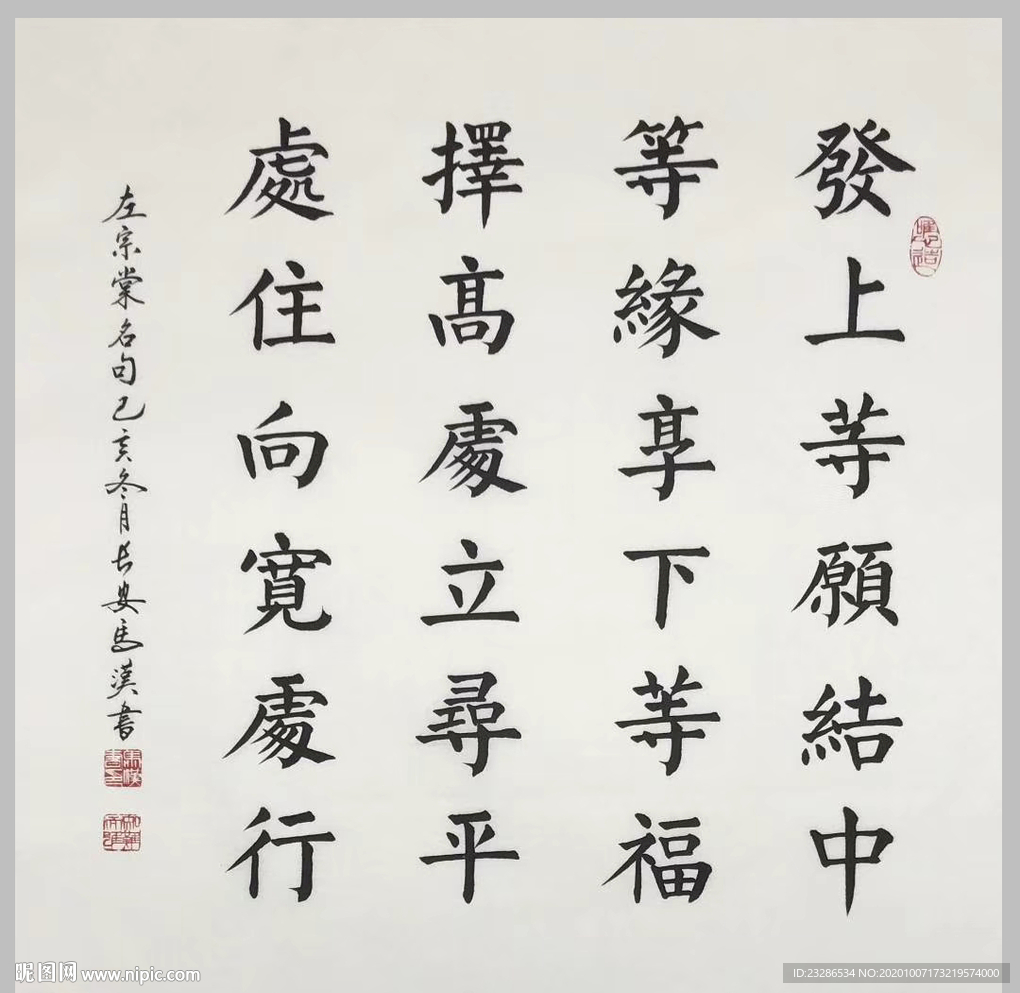 發上等願結中
等緣享下等福
擇高處立尋平
處住向寬處行
左宗棠名句己亥冬月長安馬漢書
昵图网 www.nipic.com
ID:23286534 NO:20201007173219574000